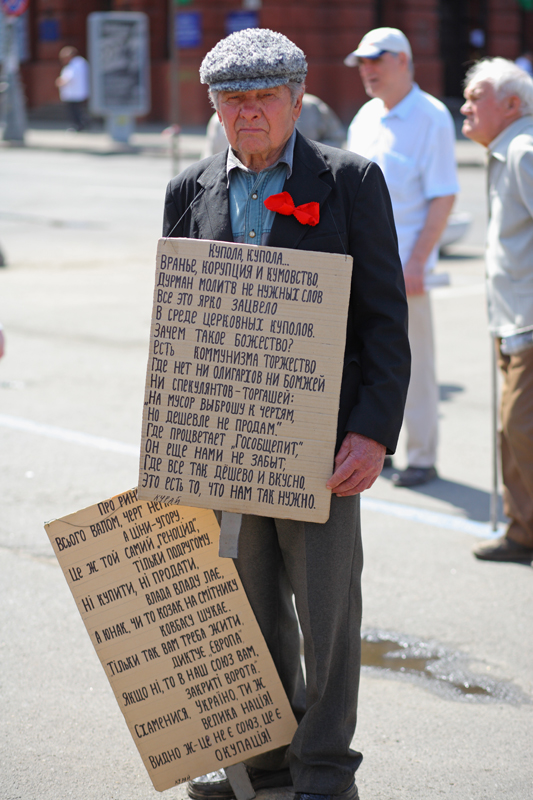 КУПОЛА, КУПОЛА...
ВРАНЬЕ, КОРУПЦИЯ И КУМОВСТВО,
ДУРМАН МОЛИТВ НЕ НУЖНЫХ СЛОВ
ВСЕ ЭТО ЯРКО ЗАЦВЕЛО
В СРЕДЕ ЦЕРКОВНЫХ КУПОЛОВ.
ЗАЧЕМ ТАКОЕ БОЖЕСТВО?
ЕСТЬ КОММУНИЗМА ТОРЖЕСТВО
ГДЕ НЕТ НИ ОЛИГАРХОВ НИ БОМЖЕЙ
НИ СПЕКУЛЯНТОВ-ТОРГАШЕЙ:
„НА МУСОР ВЫБРОШУ К ЧЕРТЯМ,
НО ДЕШЕВЛЕ НЕ ПРОДАМ."
ГДЕ ПРОЦВЕТАЕТ „ГОСОБЩЕПИТ",
ОН ЕЩЕ НАМИ НЕ ЗАБЫТ,
ГДЕ ВСЕ ТАК ДЕШЕВО И ВКУСНО,
ЭТО ЕСТЬ ТО, ЧТО НАМ ТАК НУЖНО.
ПРО
ВСЬОГО ВАЛОМ, ЧЕРГ
А ЦІНИ-УГОРУ,
ЦЕ Ж ТОЙ САМИЙ „ГЕНОЦИД",
ТІЛЬКИ ПОДРУГОМУ.
НІ КУПИТИ, НІ ПРОДАТИ,
ВЛАДА ВЛАДУ ЛАЄ,
А ЮНАК, ЧИ ТО КОЗАК НА СМІТНИКУ
КОВБАСУ ШУКАЕ.
ТІЛЬКИ ТАК ВАМ ТРЕБА ЖИТИ,
ДИКТУЕ „ЄВРОПА"
ЯКЩО НІ, ТО В НАШ СОЮЗ ВАМ,
ЗАКРИТІ ВОРОТА".
СХАМЕНИСЯ, УКРАЇНО, ТИ Ж
ВЕЛИКА НАЦІЯ!
ВИДНО Ж-ЦЕ НЕ Є СОЮЗ, ЦЕ Є
ОКУПАЦІЯ!